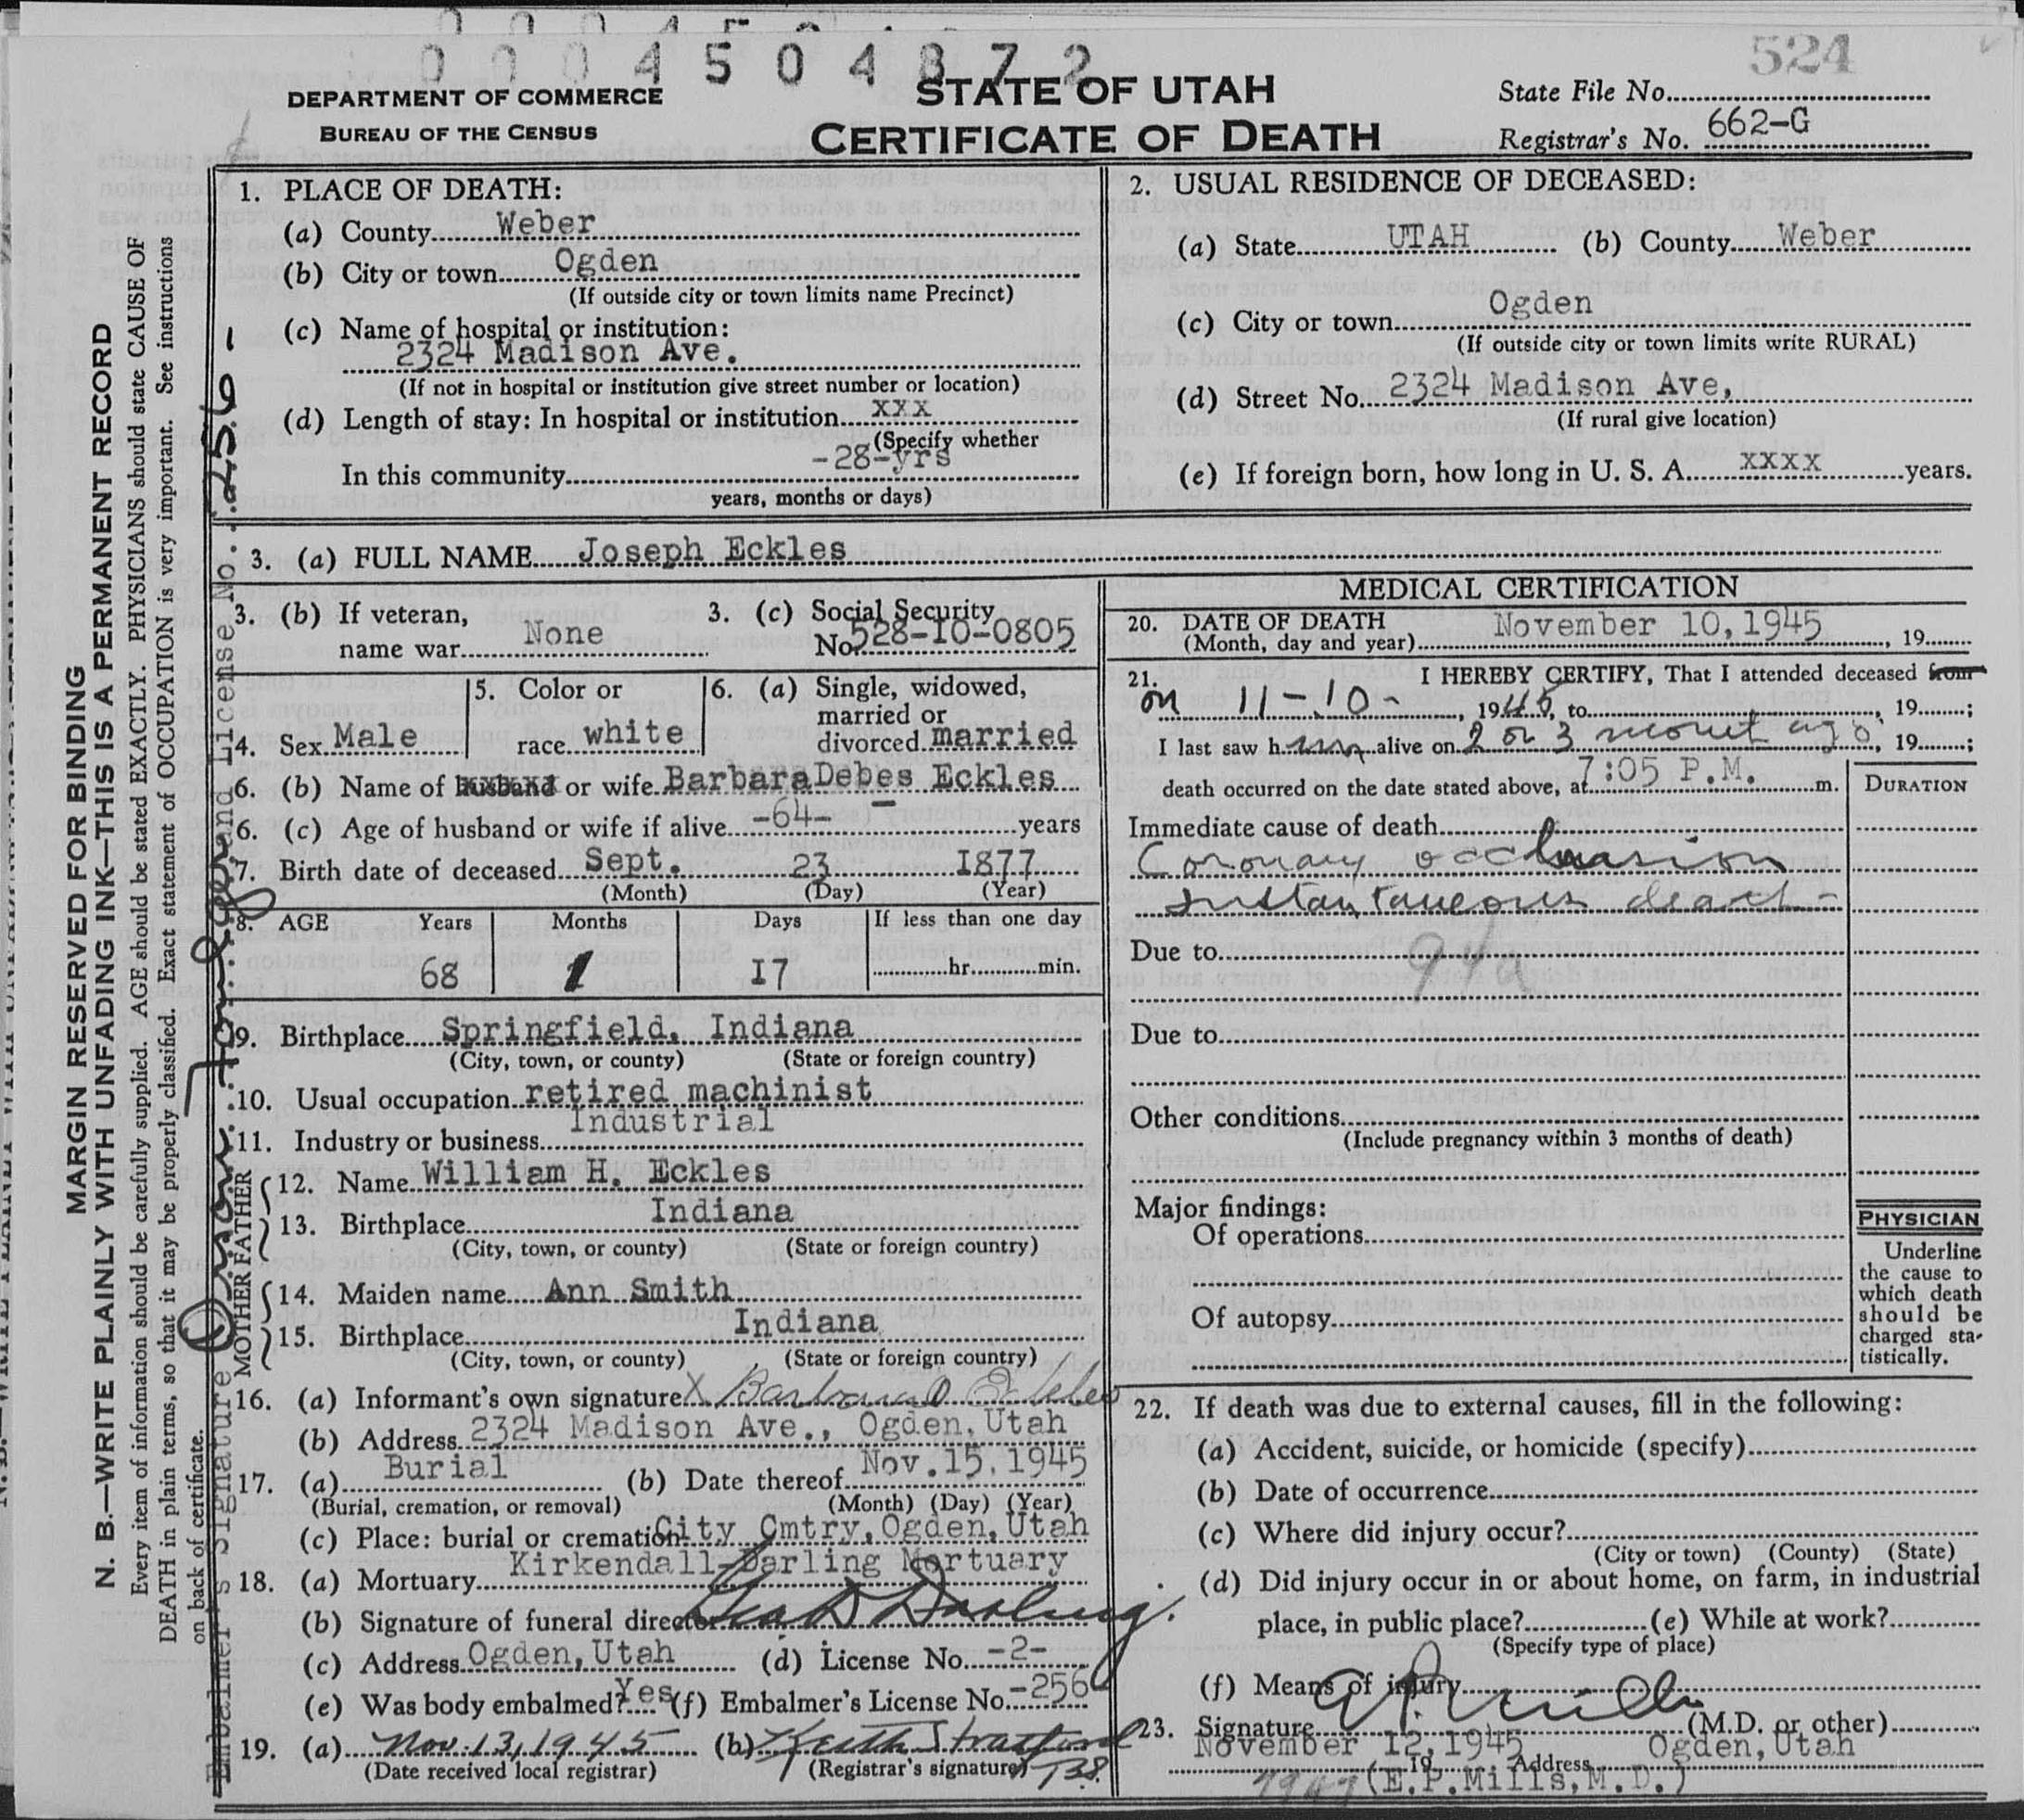 0004504872
524
DEPARTMENT OF COMMERCE
BUREAU OF THE CENSUS
STATE OF UTAH
CERTIFICATE OF DEATH
State File No.
Registrar's No. 662-G
1. PLACE OF DEATH:
(a) County Weber
(b) City or town Ogden
(If outside city or town limits name Precinct)
(c) Name of hospital or institution:
2324 Madison Ave.
(If not in hospital or institution give street number or location)
(d) Length of stay: In hospital or institution xxx
(Specify whether
In this community -28-yrs
years, months or days)
2. USUAL RESIDENCE OF DECEASED:
(a) State UTAH (b) County Weber
(c) City or town Ogden
(If outside city or town limits write RURAL)
(d) Street No. 2324 Madison Ave,
(If rural give location)
(e) If foreign born, how long in U. S. A. xxxx years.
3. (a) FULL NAME Joseph Eckles
3. (b) If veteran, name war None
3. (c) Social Security No. 528-10-0805
4. Sex Male
5. Color or race white
6. (a) Single, widowed, married or divorced married
6. (b) Name of husband or wife Barbara Debes Eckles
6. (c) Age of husband or wife if alive -64- years
7. Birth date of deceased Sept. 23 1877
(Month) (Day) (Year)
8. AGE Years Months Days If less than one day
68 1 17 hr. min.
9. Birthplace Springfield, Indiana
(City, town, or county) (State or foreign country)
10. Usual occupation retired machinist
11. Industry or business Industrial
FATHER
12. Name William H. Eckles
13. Birthplace Indiana
(City, town, or county) (State or foreign country)
MOTHER
14. Maiden name Ann Smith
15. Birthplace Indiana
(City, town, or county) (State or foreign country)
16. (a) Informant's own signature X Barbara D. Eckles
(b) Address 2324 Madison Ave., Ogden, Utah
17. (a) Burial (b) Date thereof Nov. 15, 1945
(Burial, cremation, or removal) (Month) (Day) (Year)
(c) Place: burial or cremation City Cmtry, Ogden, Utah
18. (a) Mortuary Kirkendall-Darling Mortuary
(b) Signature of funeral director Geo D Darling
(c) Address Ogden, Utah (d) License No. -2-
(e) Was body embalmed? Yes (f) Embalmer's License No. -256
19. (a) Nov. 13, 1945 (b) Keith Stratford
(Date received local registrar) (Registrar's signature)
MEDICAL CERTIFICATION
20. DATE OF DEATH
(Month, day and year) November 10, 1945, 19
21. I HEREBY CERTIFY, That I attended deceased from
on 11-10-, 1945, to , 19 ;
I last saw him alive on 2 or 3 ago, 19 ;
death occurred on the date stated above, at 7:05 P.M. m.
DURATION
Immediate cause of death
Coronary occlusion
Instantaneous death-
Due to 94a
Due to
Other conditions
(Include pregnancy within 3 months of death)
Major findings:
Of operations
Of autopsy
PHYSICIAN
Underline
the cause to
which death
should be
charged sta-
tistically.
22. If death was due to external causes, fill in the following:
(a) Accident, suicide, or homicide (specify)
(b) Date of occurrence
(c) Where did injury occur?
(City or town) (County) (State)
(d) Did injury occur in or about home, on farm, in industrial
place, in public place? (e) While at work?
(Specify type of place)
(f) Means of injury
23. Signature E P Mills (M.D. or other)
November 12, 1945 19 Address Ogden, Utah
(E.P.Mills,M.D.)
MARGIN RESERVED FOR BINDING
N. B.—WRITE PLAINLY WITH UNFADING INK—THIS IS A PERMANENT RECORD
Every item of information should be carefully supplied. AGE should be stated EXACTLY. PHYSICIANS should state CAUSE OF
DEATH in plain terms, so that it may be properly classified. Exact statement of OCCUPATION is very important. See instructions
on back of certificate.
Embalmer's Signature and License No.